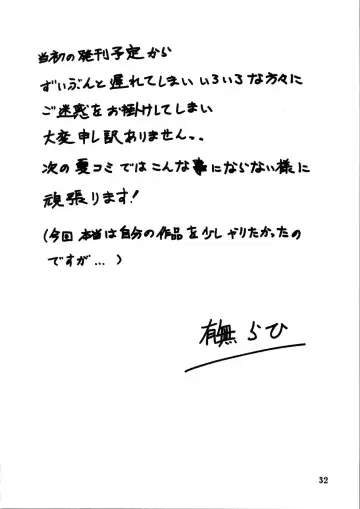 当初の発刊予定から
ずいぶんと遅れてしまいいろいろな方々に
ご迷惑をお掛けしてしまい
大変申し訳ありません。。
次の夏コミではこんな事にならない様に
頑張ります!
(今回本当は自分の作品を少しやりたかったの
ですが…)
有無らひ
32